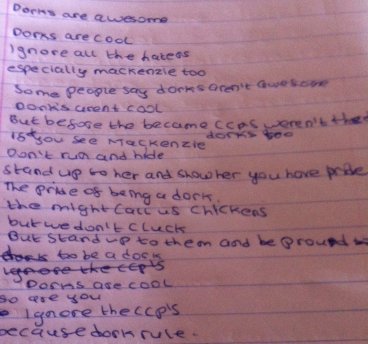 Dorks are awesome
Dorks are cool
Ignore all the haters
especially mackenzie too
Some people say dorks aren't awesome
Dorks arent cool
But before the became CCPS weren't the
dorks too
If you see Mackenzie
Don't run and hide
stand up to her and show her you have pride
The pride of being a dork.
the might call us chickens
but we don't cluck
But stand up to them and be proud
dork to be a dork
ignore the ccp's
Dorks are cool
so are you
Ignore the ccp's
because dork rule.